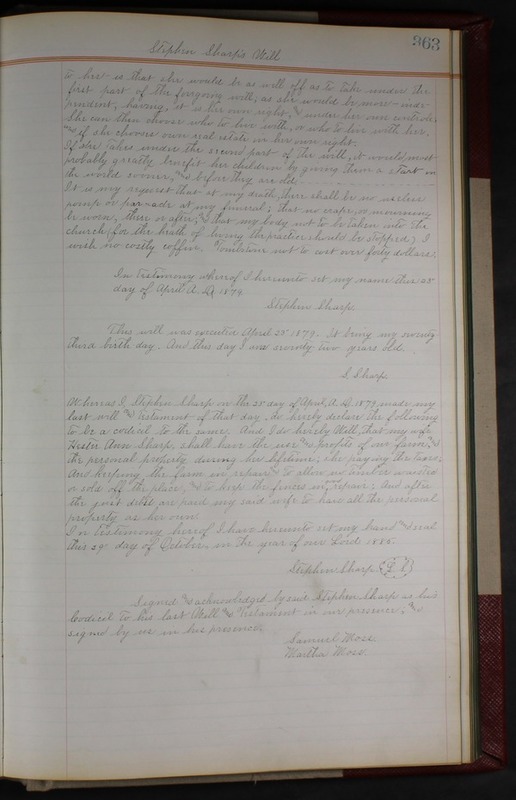 363
Stephen Sharp's Will
to her is that she would be as well off as to take under the
first part of the forgoing will; as she would be more inde-
pendent, having it in her own right, & under her own controle.
She can then choose who to live with, or who to live with her,
and if she chooses own real estate in her own right.
If she takes under the second part of the will, it would most
probably greatly benefit her children by giving them a start in
the world sooner, and before they are old
It is my request that at my death, there shall be no useless
pomp or parade at my funeral; that no crape, or mourning
be worn, then or after; and that my body not to be taken into the
church (for the health of living the practice should be stopped) I
wish no costly coffin. Tombston not to cost over forty dollars.
In Testimony whereof I hereunto set my name this 25
day of April A. D. 1879
Stephen Sharp
This will was executed April 25th 1879. It being my seventy
third birth day. And this day I am seventy two years old.
S. Sharp.
Whereas I, Stephen Sharp on the 25 day of April, A. D. 1879 made my
last will and Testament of that day, do hereby declare the following
to be a codicil to the same. And I do hereby Will, that my wife
Hester Ann Sharp, shall have the use and profits of my farm, and
the personal property during her lifetime; she paying the taxes;
And keeping the farm in repair, and to allow no timber wasted
or sold off the place, and to keep the fences in repair; And after
the just debts are paid my said wife to have all the personal
property as her own.
In Testimony hereof I have hereunto set my hand and seal
this 29 day of October, in the year of our Lord 1885.
Stephen Sharp (L. S.)
Signed and acknowledged by said Stephen Sharp as his
Codicil to his last Will and Testament in our presence, and
signed by us in his presence.
Samuel Moss
Martha Moss.